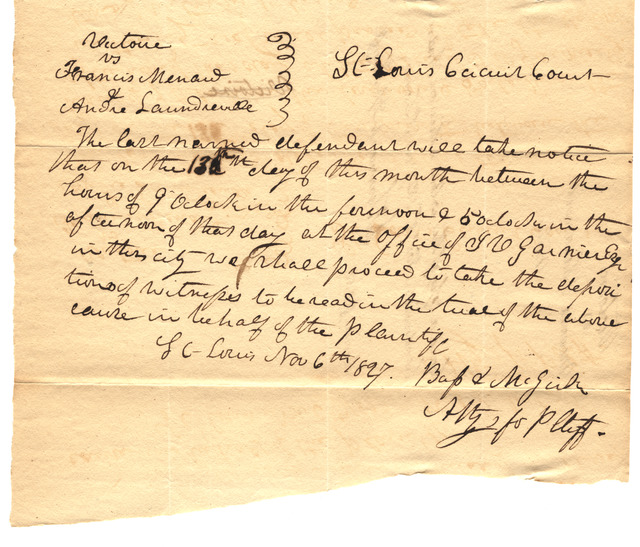 Victoire
vs
Francis Menard
&
Andre Laundreville
St Louis Circuit Court
The last named defendant will take notice
that on the 13th day of this month between the
hours of 9 Oclock in the forenoon & 5 oclock in the
afternoon of that day at the Office of Garnier Esqr
in this city we shall proceed to take the deposi
tions of witnesses to be read in the trial of the above
cause in behalf of the Plaintiff
St Louis Nov 6th 1827.
Bass & McGirk
Attys for Pltff.